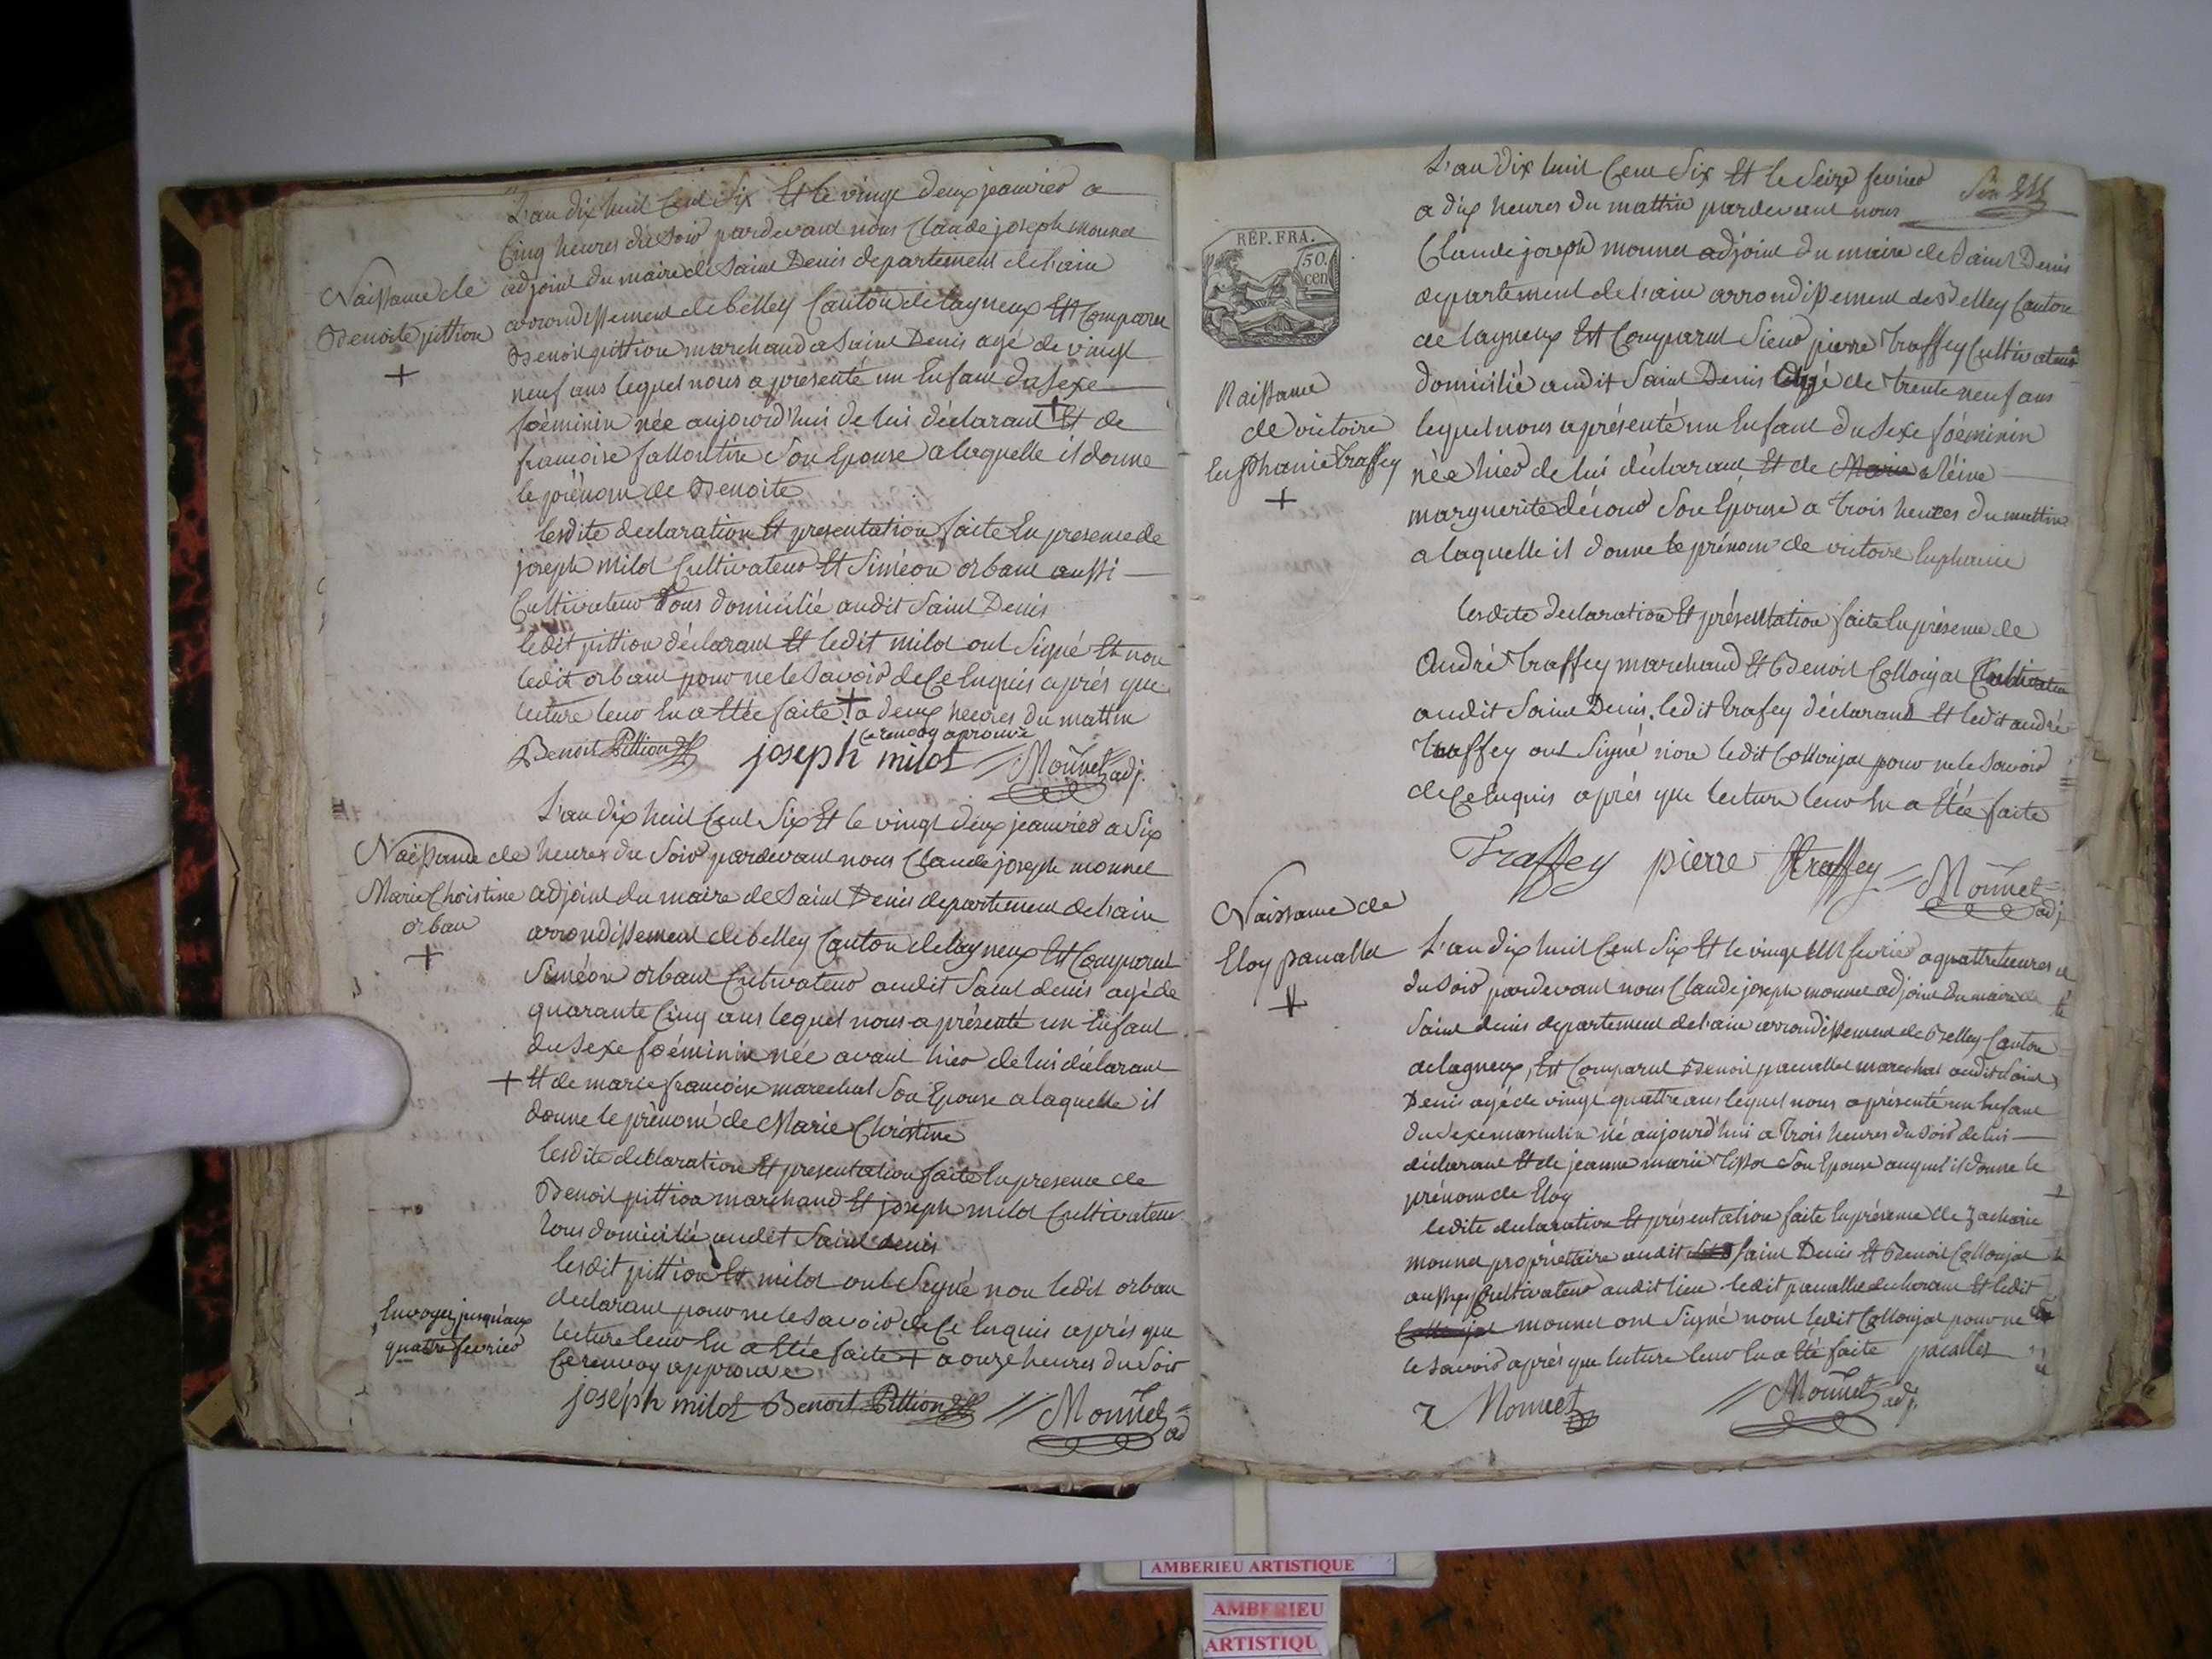 Naissance de
Benoite pittion
+
L'an dix huit Cent Six Et le vingt deux jeanvier a
Cinq heures du Soir pardevant nous Claude joseph monnet
adjoint du maire de Saint Denis departement de l'ain
arrondissement de belley Canton de lagneux Est Comparu
Benoit pittion marchand a Saint Denis agé de vingt
neuf ans lequel nous a presenté un Enfant du Sexe
foéminin née aujourd'hui de lui déclarant + Et de
francoise Son Epouse a laquelle il donne
le prénom de Benoite
lesdite declaration Et presentation faite En presence de
joseph milot Cultivateur Et Siméon orbant aussi
Cultivateur tous domicilié audit Saint Denis
ledit pittion déclarant Et ledit milot ont Signé Et non
ledit orbant pour ne le Savoir de Ce Enquis aprés que
lecture leur En a Etée faite. + a deux heures du mattin
Ce renvoy aprouvé
Benoit Pittion joseph milot Monnet adj.
Naissance de
Marie Christine
orban
+
L'an dix huit Cent Six Et le vingt deux jeanvier a Six
heures du Soir pardevant nous Claude joseph monnet
adjoint du maire de Saint Denis departement de l'ain
arrondissement de belley Canton de lagneux Est Comparut
Siméon orbant Cultivateur audit Saint denis agé de
quarante Cinq ans lequel nous a présenté un Enfant
du Sexe foéminin née avant hier de lui déclarant
+ Et de marie francoise marechal Son Epouse a laquelle il
donne le prénom de Marie Christine
lesdite declaration Et presentation faite En presence de
Benoit pittion marchand Et joseph milot Cultivateur
tous domicilié audit Saint denis
lesdit pittion Et milot ont Signé non ledit orban
declarant pour ne le Savoir de Ce Enquis aprés que
lecture leur En a Etée faite + a onze heures du Soir
Ce renvoy approuvé
Envoyer jusqu'aux
quatre fevrier
joseph milot Benoit Pittion Monnet ad
L'an dix huit Cent Six Et le Seize fevrier
a dix heures du mattin pardevant nous
REP. FRA.
50.
cen
Naissance
de victoire
Euphanie traffey
+
Claude joseph monnet adjoint du maire de Saint Denis
departement de l'ain arrondissement de Belley Canton
de lagneux Est Comparut Sieur pierre traffey Cultivateur
domicilié audit Saint Denis agé de trente neuf ans
lequel nous a présenté un Enfant du Sexe foéminin
née hier de lui déclarant Et de Marie Réine
marguerite Son Epouse a trois heures du mattin
a laquelle il donne le prénom de victoire Euphanie
lesdite declaration Et présentation faite En présence de
André traffey marchand Et Benoit Collonjat Cultivateur
audit Saint Denis. ledit trafey déclarant Et ledit andré
traffey ont Signé non ledit Collonjat pour ne le Savoir
de Ce Enquis aprés que lecture leur En a Etée faite
Traffey pierre traffey Monnet adj
Naissance de
Eloy panallet
+
L'an dix huit Cent Six Et le vingt fevrier a quattre heures
du Soir pardevant nous Claude joseph monnet adjoint du maire de
Saint denis departement de l'ain arrondissement de Belley Canton
de lagneux, Est Comparut Benoit panallet marechal audit Saint
Denis agé de vingt quattre ans lequel nous a présenté un Enfant
du Sexe masculin né aujourd'hui a trois heures du Soir de lui
déclarant Et de jeanne marie Son Epouse auquel il donne le
prénom de Eloy
ledite declaration Et présentation faite En présence de Zacharie
monnet propriettaire audit Saint Denis Et Benoit Collonjat
Cultivateur audit lieu. ledit panallet declarant Et ledit
monnet ont Signé nont ledit Collonjat pour ne
le Savoir aprés que lecture leur En a Eté faite
Z Monnet Monnet adj.
AMBERIEU ARTISTIQUE
AMBERIEU
ARTISTIQU